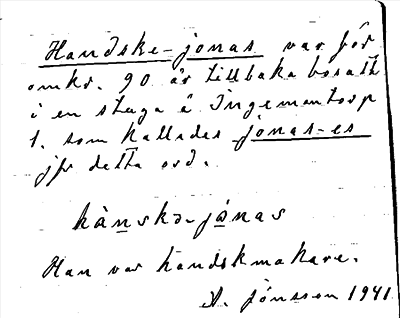 Handske-jonas var för
omkr. 90 år tillbaka bosatt
i en stuga å Ingemantorp
1. som kallades jonas-es
jfr detta ord.
hànskə-jọnas
Han var handskmakare.
A. Jönsson 1941